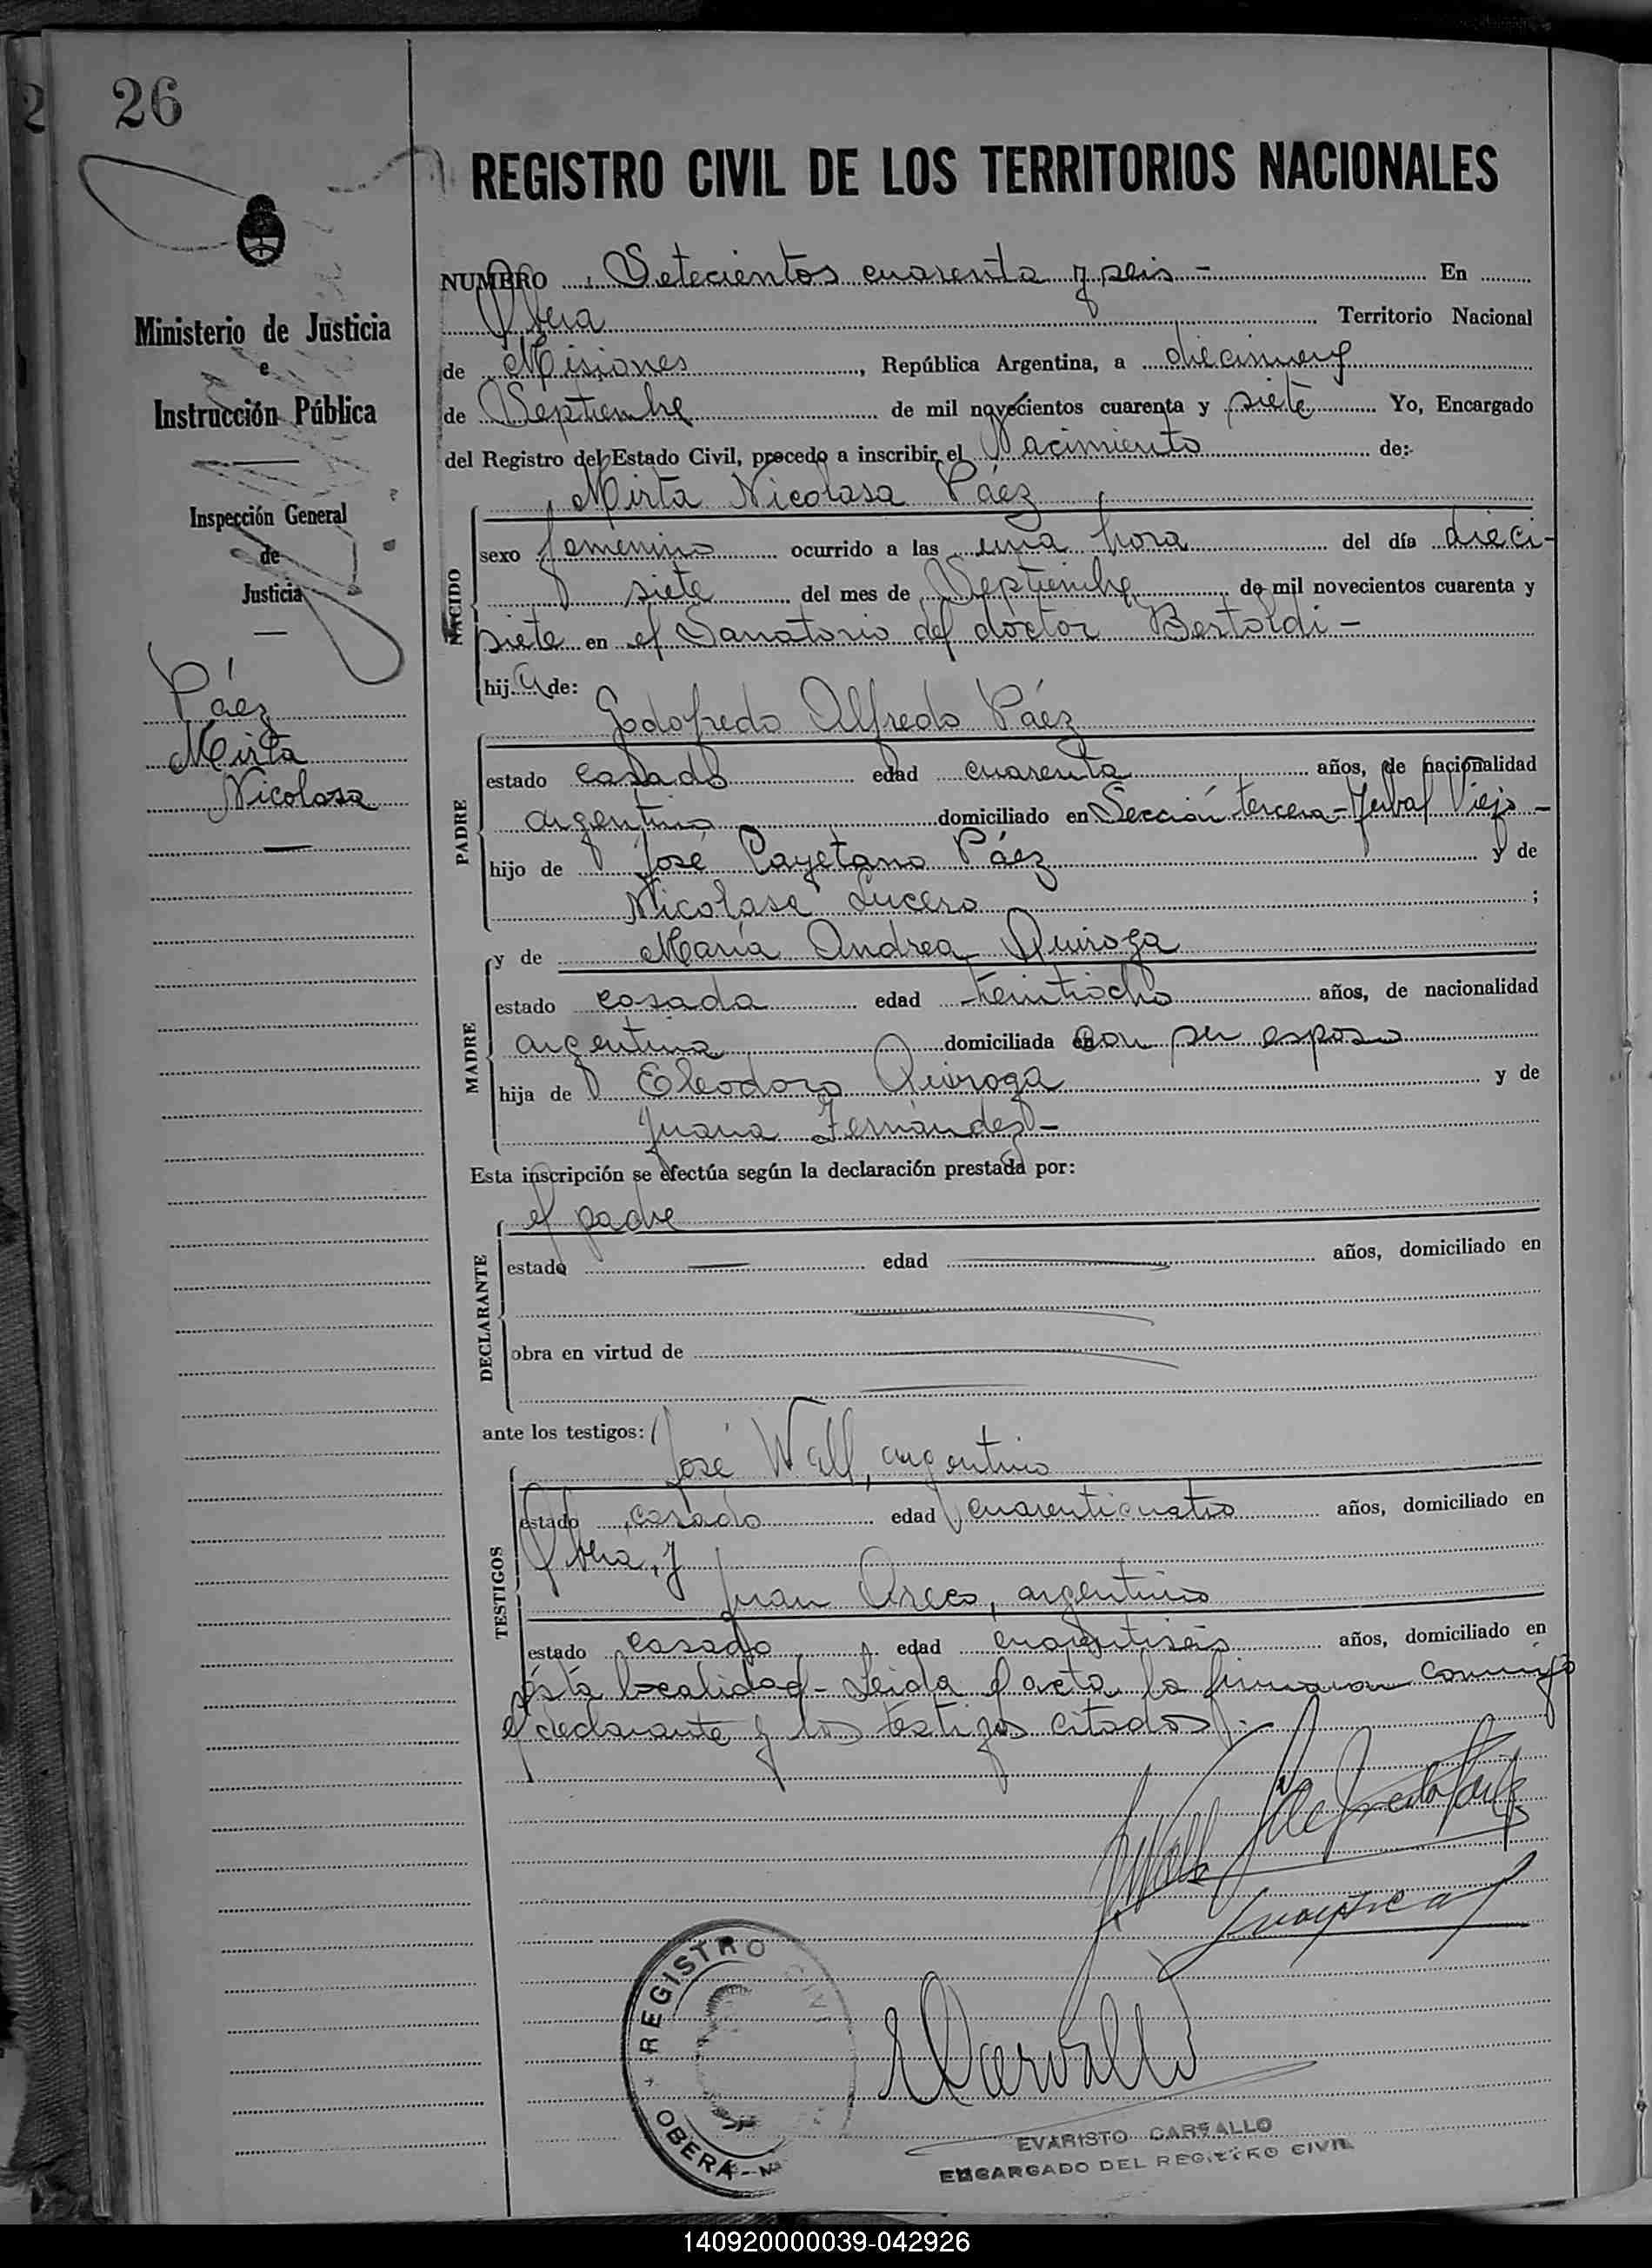 26
REGISTRO CIVIL DE LOS TERRITORIOS NACIONALES
Ministerio de Justicia
e
Instrucción Pública
Inspección General
de
Justicia
Páez
Mirta
Nicolasa
NUMERO Setecientos cuarenta y seis - En
Obera Territorio Nacional
de Misiones, República Argentina, a diecinueve
de Septiembre de mil novecientos cuarenta y siete Yo, Encargado
del Registro del Estado Civil, procedo a inscribir el Nacimiento de:
Mirta Nicolasa Páez
NACIDO
sexo femenino ocurrido a las una hora del día dieci-
siete del mes de Septiembre de mil novecientos cuarenta y
siete en el Sanatorio del doctor Bertoldi -
hija de:
Godofredo Alfredo Páez
PADRE
estado casado edad cuarenta años, de nacionalidad
argentino domiciliado en Sección tercera - Yerbal Viejo -
hijo de José Cayetano Páez y de
Nicolasa Lucero ;
y de María Andrea Quiroga
MADRE
estado casada edad años, de nacionalidad
argentina domiciliada en con su esposo
hija de Eleodoro Quiroga y de
Juana Fernández -
Esta inscripción se efectúa según la declaración prestada por:
el padre
DECLARANTE
estado edad años, domiciliado en
obra en virtud de
ante los testigos:
José Wall, argentino
TESTIGOS
estado casado edad cuarenticuatro años, domiciliado en
Obera, y
Juan , argentino
estado casado edad cuarentiseis años, domiciliado en
ésta localidad - Leida el acta la firmaron conmigo
el declarante y los testigos citados.
REGISTRO CIVI
OBERA - M
ECarvallo
EVARISTO CARVALLO
ENCARGADO DEL REGISTRO CIVIL
140920000039-042926